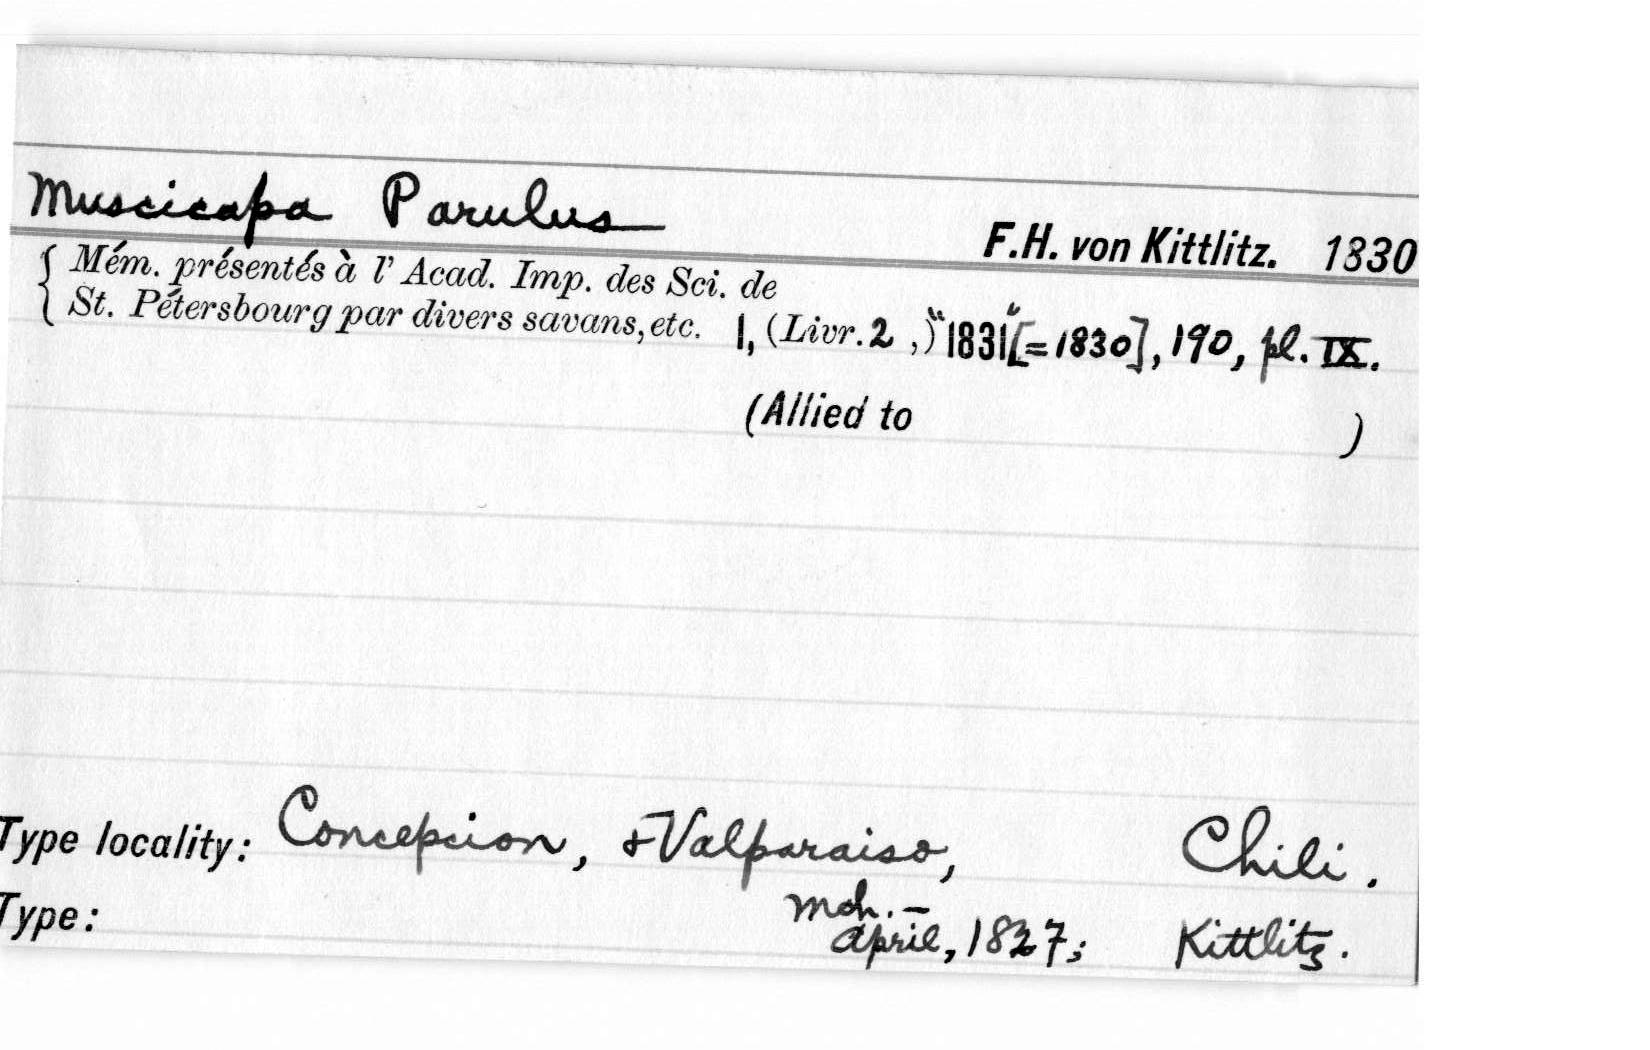 Muscicapa Parulus
F.H. von Kittlitz. 1830
{ Mém. présentés à l' Acad. Imp. des Sci. de
St. Pétersbourg par divers savans, etc. 1, (Livr. 2 ,) "1831" [=1830], 190, pl. IX.
(Allied to )
Type locality: Concepcion, & Valparaiso, Chili.
Type: Mch. –
April, 1827; Kittlitz.